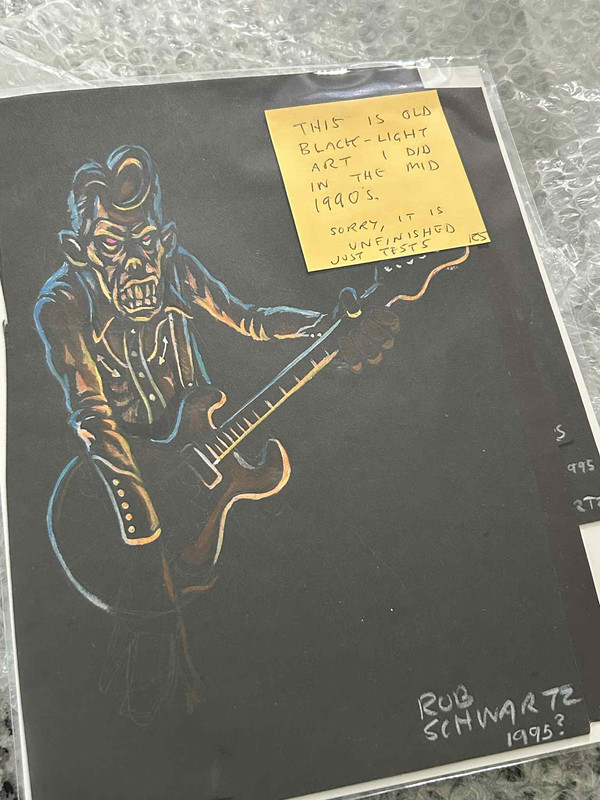 THIS IS OLD
BLACK-LIGHT
ART I DID
IN THE MID
1990'S.
SORRY, IT IS
UNFINISHED
JUST TESTS
RS
ROB
SCHWARTZ
1995?
S
995
RTZ